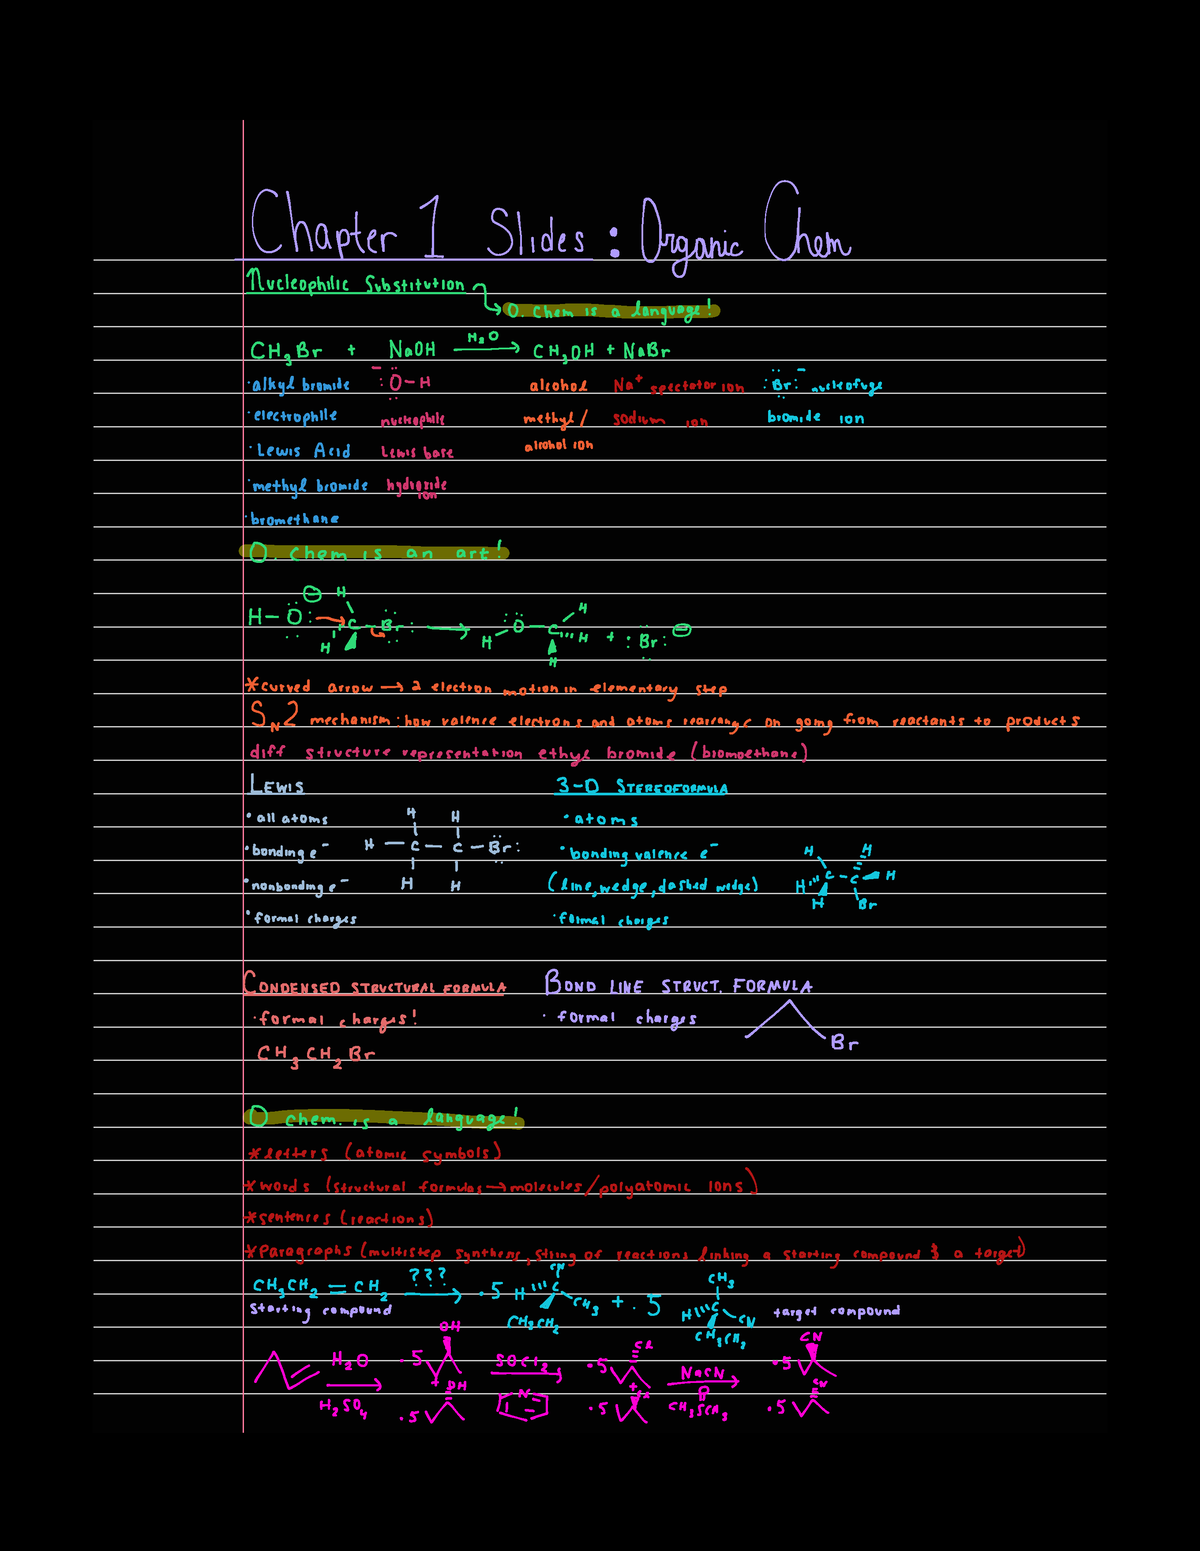 Chapter 1 Slides : Organic Chem
Nucleophilic Substitution
O. Chem is a language!
CH3Br + NaOH H2O → CH3OH + NaBr
· alkyl bromide - :O-H alcohol Na+ spectator ion :Br:- nucleofuge
· electrophile nucleophile methyl/ sodium ion bromide ion
· Lewis Acid Lewis base alcohol ion
· methyl bromide hydroxide ion
· bromethane
O. Chem is an art!
H
H-O: C-Br: → O C H H + :Br: ⊖
H H H
*curved arrow → 2 electron motion in elementary step
SN2 mechanism: how valence electrons and atoms rearrange on going from reactants to products
diff structure representation ethyl bromide (bromoethane)
LEWIS 3-D STEREOFORMULA
· all atoms H H · atoms
· bonding e- H-C-C-Br: · bonding valence e- H H
· nonbonding e- H H (line, wedge, dashed wedge) H C-C H
· formal charges · formal charges H Br
CONDENSED STRUCTURAL FORMULA BOND LINE STRUCT. FORMULA
· formal charges! · formal charges
CH3CH2Br Br
O chem. is a language!
*letters (atomic symbols)
*words (structural formulas → molecules/polyatomic ions)
*sentences (reactions)
*Paragraphs (multistep synthesis, string of reactions linking a starting compound & a target)
CH3CH2=CH2 ??? → .5 H C CN CH3 CH3CH2 + .5 CH3 H C CN CH3CH2
starting compound target compound
H2O .5 OH SOCl2 .5 Cl NaCN .5 CN
H2SO4 + .5 OH N + .5 Cl O CH3SCH3 .5 CN